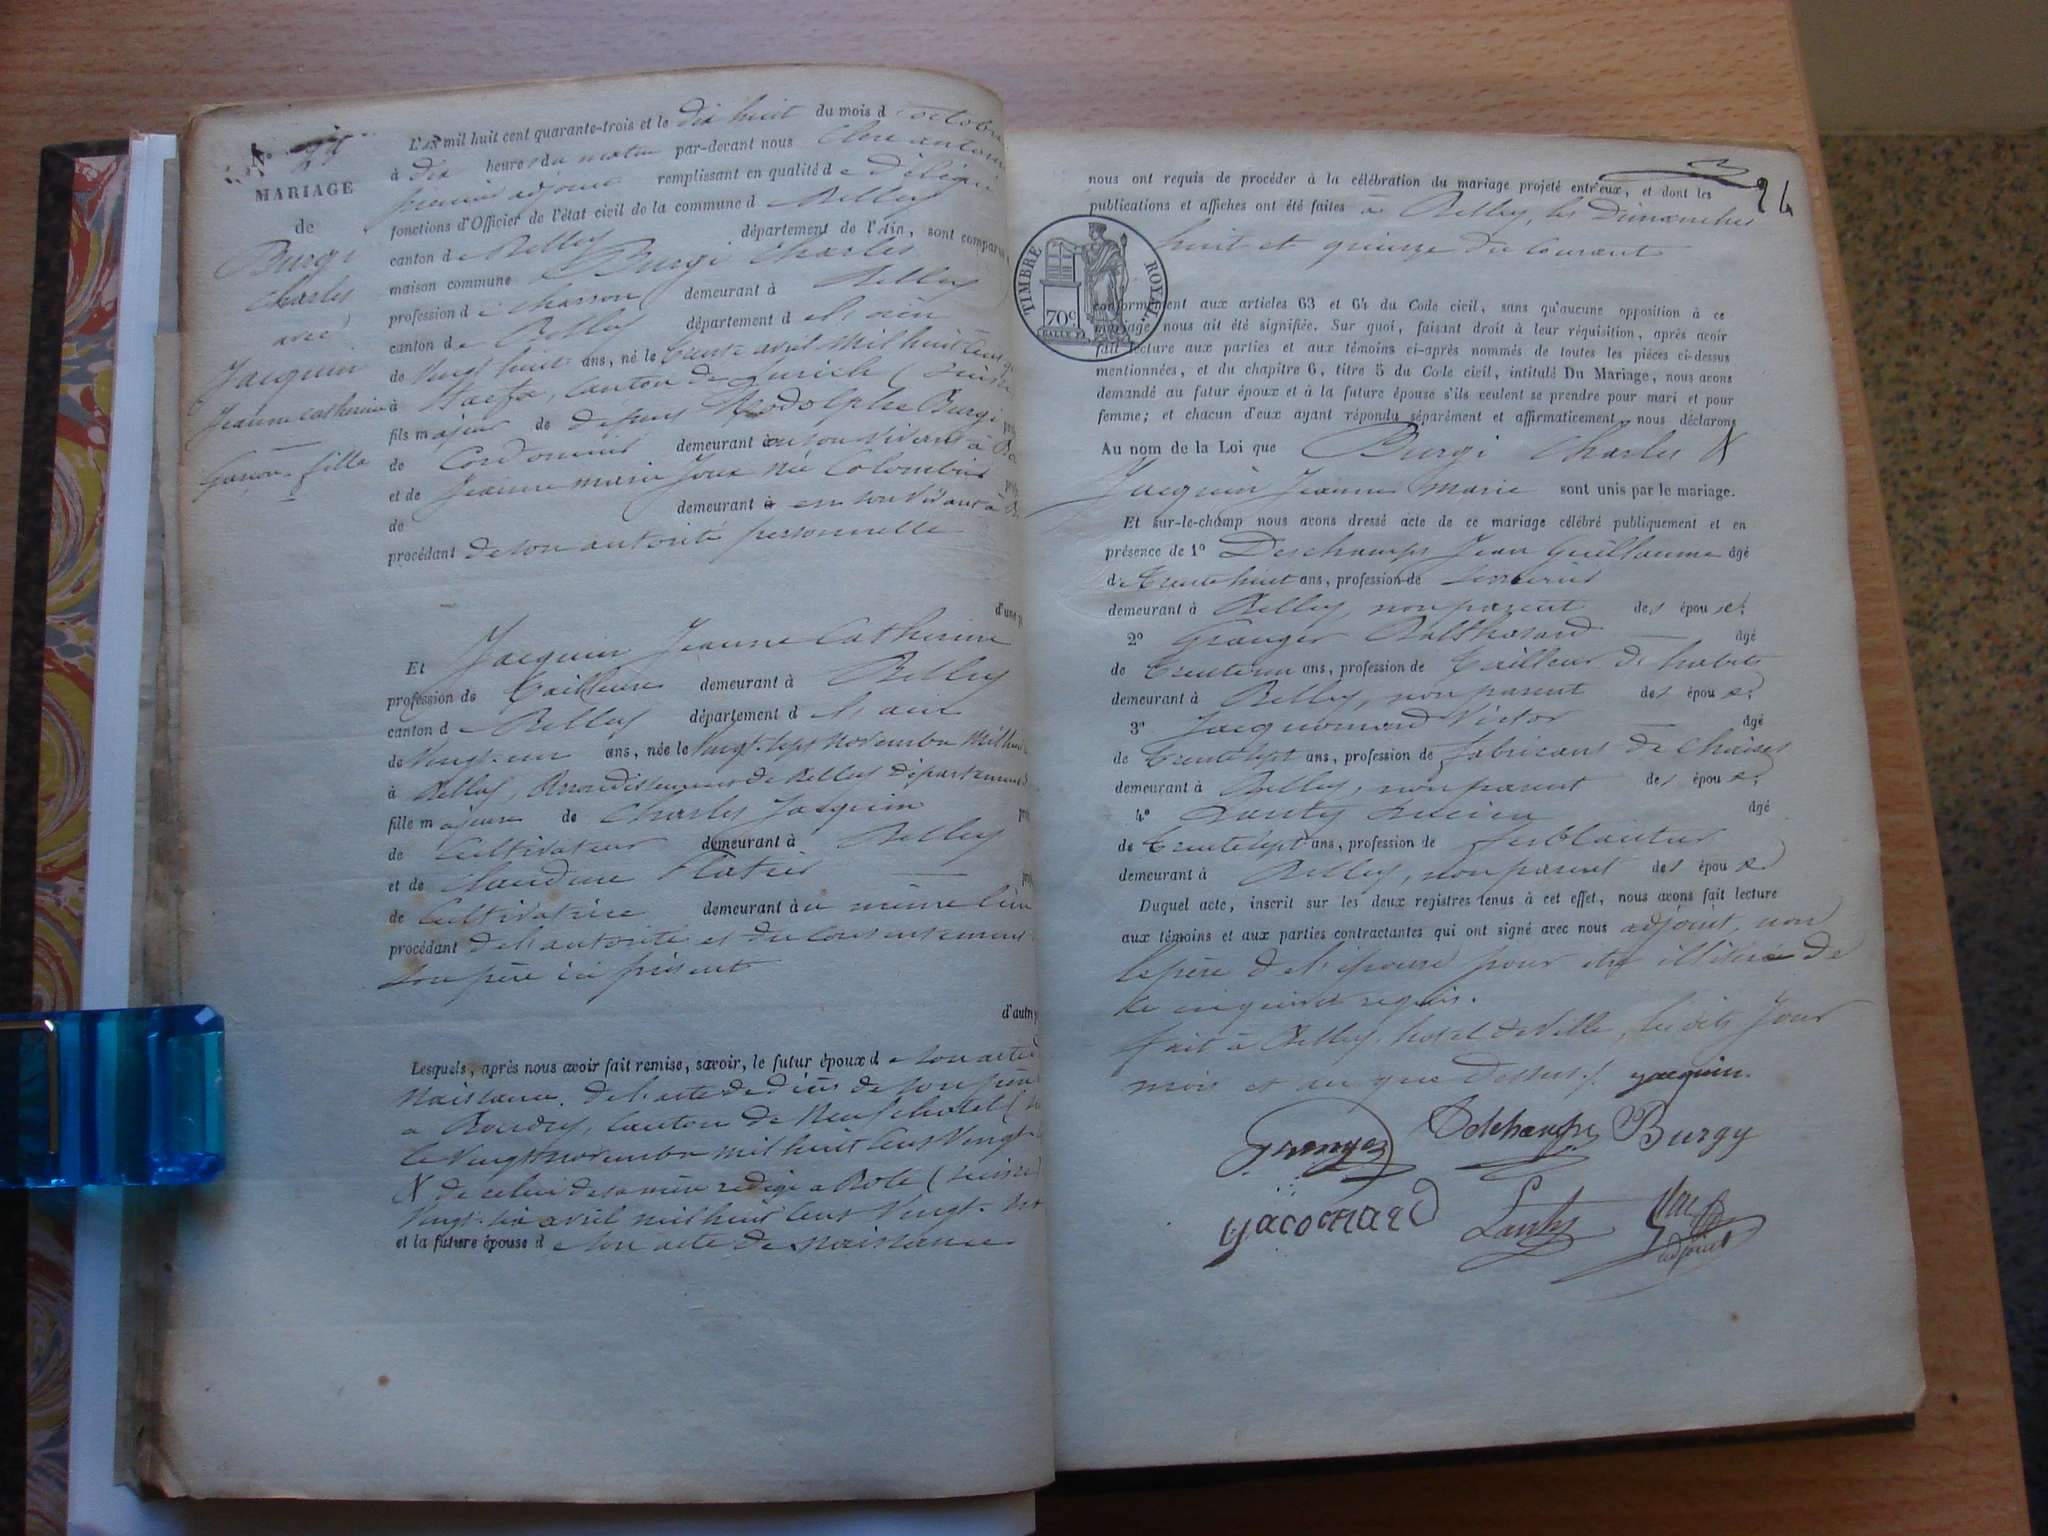 N°
MARIAGE
de
Burgi
Charles
avec
Jacquin
Jeanne Catherine
Garçon - fille
L'an mil huit cent quarante-trois et le dix huit du mois d octobre
à dix heures du matin par-devant nous
premier adjoint remplissant en qualité de délégué
fonctions d'Officier de l'état civil de la commune d Belley
canton de Belley département de l'Ain, sont comparus
maison commune Burgi Charles
profession de charron demeurant à Belley
canton de Belley département de l'ain
de Vingt huit ans, né le trente avril mil huit cent
à Staefa, canton de Zurich (Suisse
fils majeur de Rodolphe Burgi
de Cordonnier demeurant en son vivant à
et de Jeanne marie née Colombier
de demeurant à en son vivant à
procédant de son autorité personnelle
d'une
Et Jacquin Jeanne Catherine
profession de tailleuse demeurant à Belley
canton de Belley département de l'ain
de Vingt-un ans, née le Vingt-sept novembre mil huit
à Belley, Arrondissement de Belley département
fille majeure de Charles Jacquin
de Cultivateur demeurant à Belley
et de Claudine Platier
de Cultivatrice demeurant au même lieu
procédant de l'autorité et du consentement
son père ici présent
d'autre
Lesquels, après nous avoir fait remise, savoir, le futur époux de son acte
Naissance, de l'acte de décès de son père
a Boudry, canton de Neufchatel
le Vingt novembre mil huit cent Vingt
& de celui de sa mère rédigé a Role (Suisse)
Vingt-six avril mil huit cent Vingt
et la future épouse de son acte de naissance
24
nous ont requis de procéder à la célébration du mariage projeté entr'eux, et dont les
publications et affiches ont été faites à Belley, les Dimanches
huit et quinze du courant
TIMBRE ROYAL
70c
conformément aux articles 63 et 64 du Code civil, sans qu'aucune opposition à ce
mariage nous ait été signifiée. Sur quoi, faisant droit à leur réquisition, après avoir
fait lecture aux parties et aux témoins ci-après nommés de toutes les pièces ci-dessus
mentionnées, et du chapitre 6, titre 5 du Code civil, intitulé Du Mariage, nous avons
demandé au futur époux et à la future épouse s'ils veulent se prendre pour mari et pour
femme; et chacun d'eux ayant répondu séparément et affirmativement, nous déclarons
Au nom de la Loi que Burgi Charles &
Jacquin Jeanne Marie sont unis par le mariage.
Et sur-le-champ nous avons dressé acte de ce mariage célébré publiquement et en
présence de 1° Deschamps Jean Guillaume âgé
de trente huit ans, profession de serrurier
demeurant à Belley, non parent des époux;
2° Granger Balthazard âgé
de trente un ans, profession de tailleur de habits
demeurant à Belley, non parent des époux;
3° Jacquemard Victor âgé
de trente sept ans, profession de fabricant de chaises
demeurant à Belley, non parent des époux;
4° Lanty Lucien âgé
de trente sept ans, profession de ferblantier
demeurant à Belley, non parent des époux
Duquel acte, inscrit sur les deux registres tenus à cet effet, nous avons fait lecture
aux témoins et aux parties contractantes qui ont signé avec nous adjoint, non
le père de l'épouse pour être illitéré de
ce enquis et requis.
fait à Belley, hotel de ville, les dits Jour
mois et an que dessus./. jacquin
Granger Deschamps Burgy
yacomard Lanty
adjoint